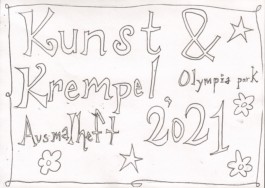 Kunst &
Krempel
Olympia park
Ausmalheft 2021